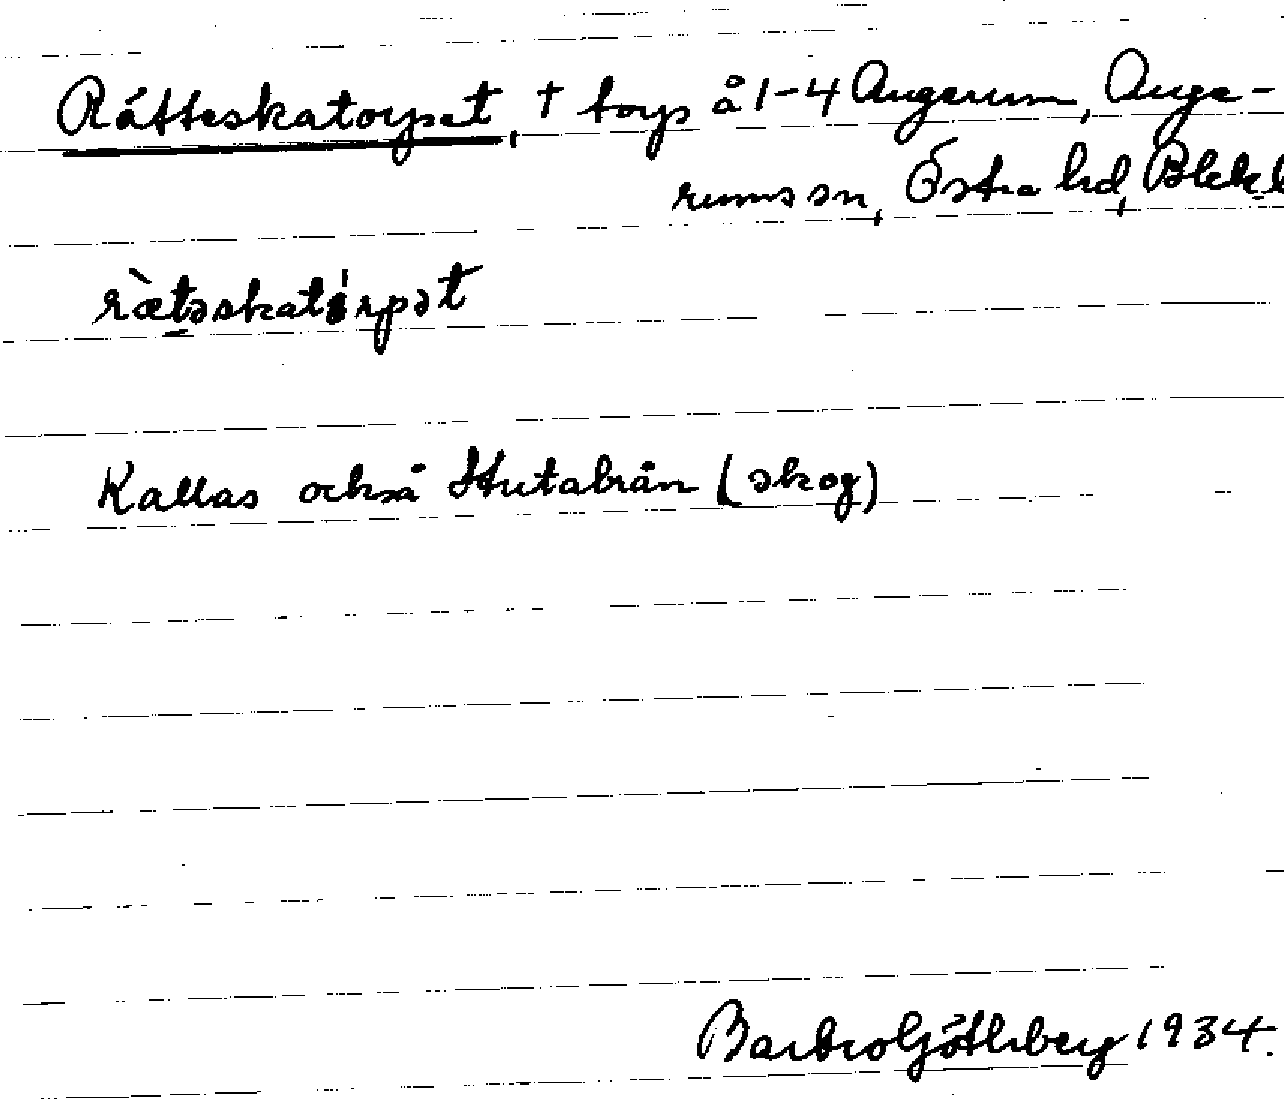 Rätteskatorpet, † torp å 1-4 Augerum, Auge-
rums sn, Östra hd, Blek.
rætəskatórpət
Kallas också Stutabrån (skog)
Barbro Göthberg 1934.